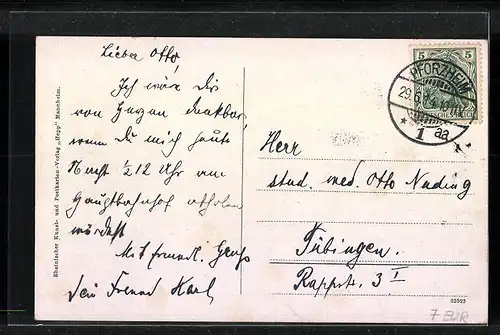 Lieber Otto,
Ich wäre Dir
von Herzen dankbar,
wenn Du mich heute
Nacht ½12 Uhr am
Hauptbahnhof abholen
würdest.
Mit freundl. Gruß
Dein Freund Karl
Rheinischer Kunst- und Postkarten-Verlag „Hepp“ Mannheim.
5 5
PFORZHEIM
29.6.
* 1 aa *
Herr
stud. med. Otto Nading
Tübingen.
Rappstr. 3 I
22323
7 EUR